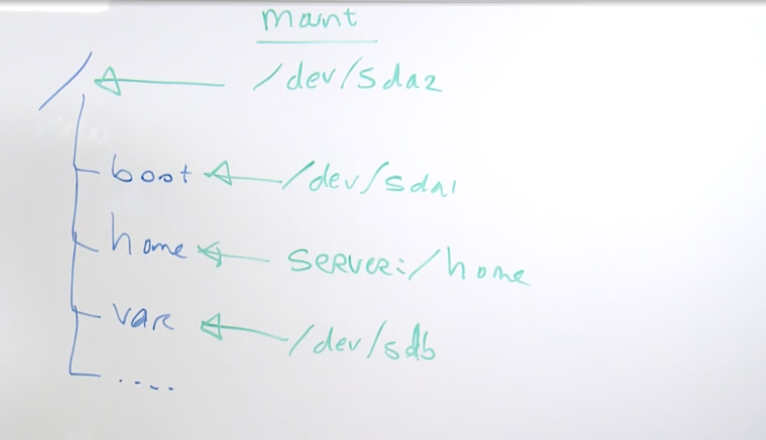 mount
/ /dev/sda2
boot /dev/sda1
home SERVER:/home
var /dev/sdb
....